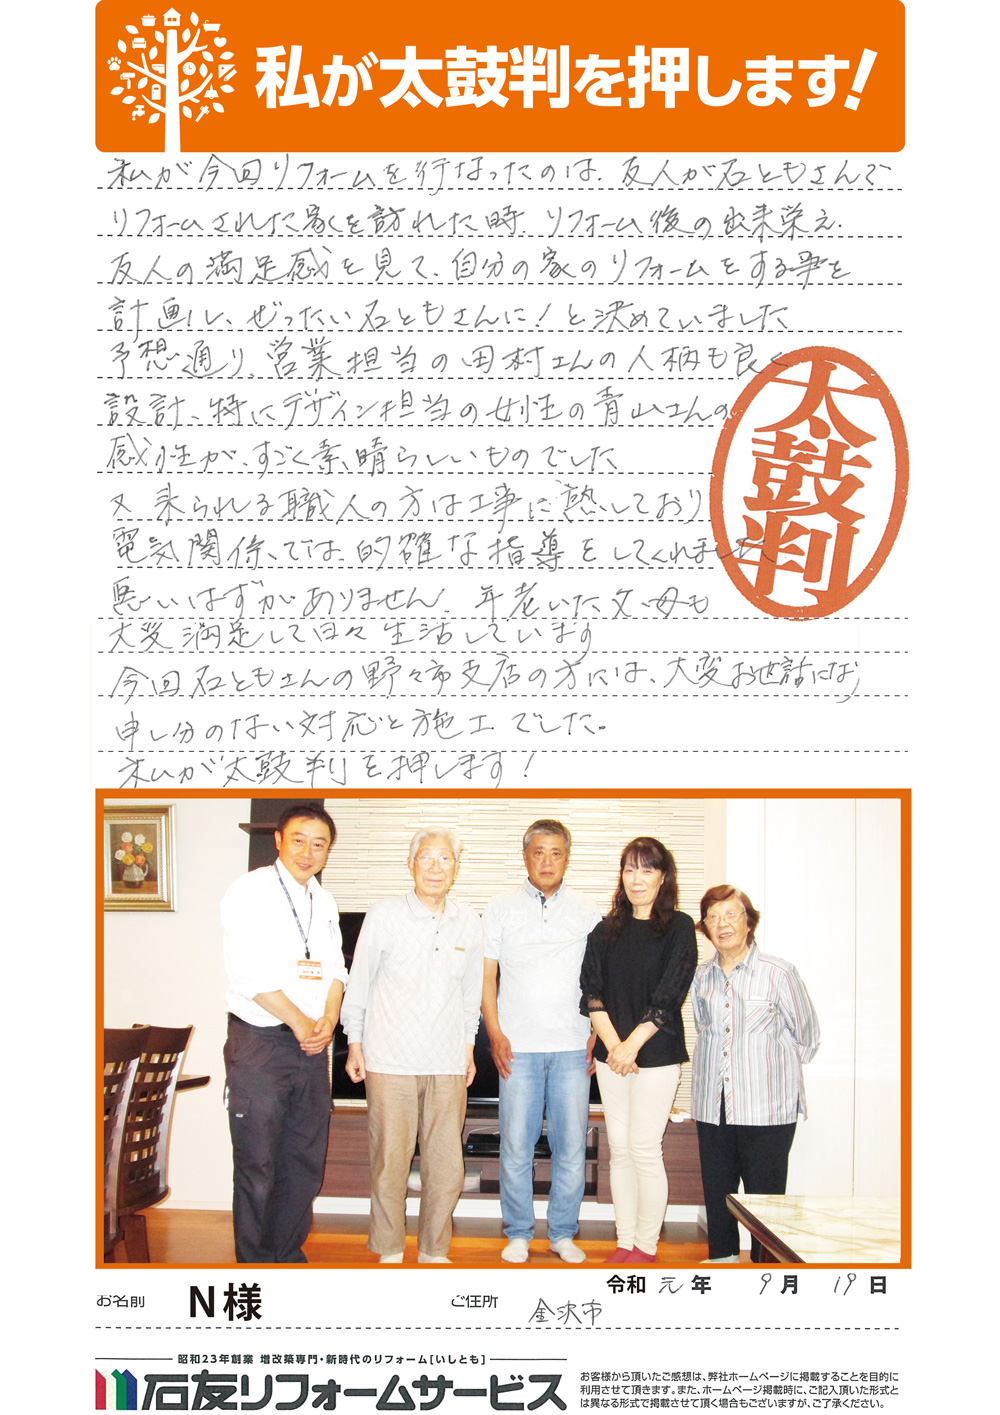 私が太鼓判を押します!
私が今回リフォームを行なったのは、友人が石ともさんで
リフォームされた家を訪れた時、リフォーム後の出来栄え、
友人の満足感を見て、自分の家のリフォームをする事を
計画し、ぜったい石ともさんに!と決めていました
予想通り、営業担当の田村さんの人柄も良く
設計、特にデザイン担当の女性の青山さんの
感性が、すごく素晴らしいものでした
又来られる職人の方は工事に熟しており
電気関係では、的確な指導をしてくれました
悪いはずがありません。年老いた父、母も
大変満足して日々生活しています
今回石ともさんの野々市支店の方には、大変お世話になり
申し分のない対応と施工でした。
私が太鼓判を押します!
太鼓判
令和 元 年 9 月 19 日
お名前 N様 ご住所 金沢市
昭和23年創業 増改築専門・新時代のリフォーム[いしとも]
石友リフォームサービス
お客様から頂いたご感想は、弊社ホームページに掲載することを目的に
利用させて頂きます。また、ホームページ掲載時に、ご記入頂いた形式と
は異なる形式で掲載させて頂く場合もございますが、ご了承ください。